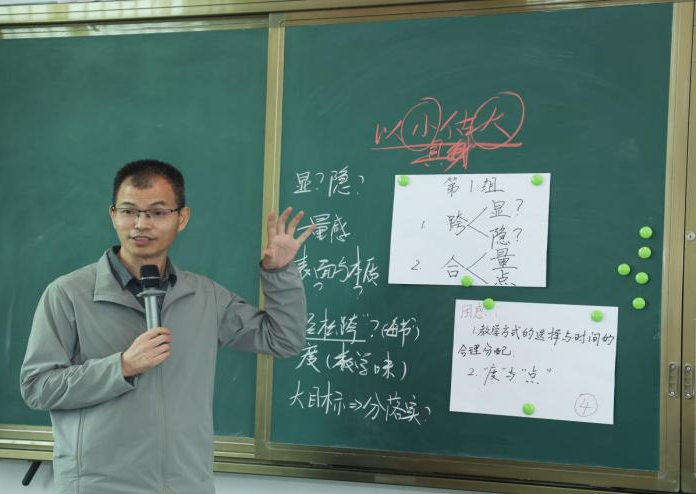 以小传大
真身
显？隐？
量感
表面与本质
？ ？
跨"？（母书）
度（数学味）
大目标⇒分落实？
第1组
1. 跨 显？
隐？
2. 合 量
点
困惑：
1.教学方式的选择与时间的
合理分配.
2."度"与"点"
④